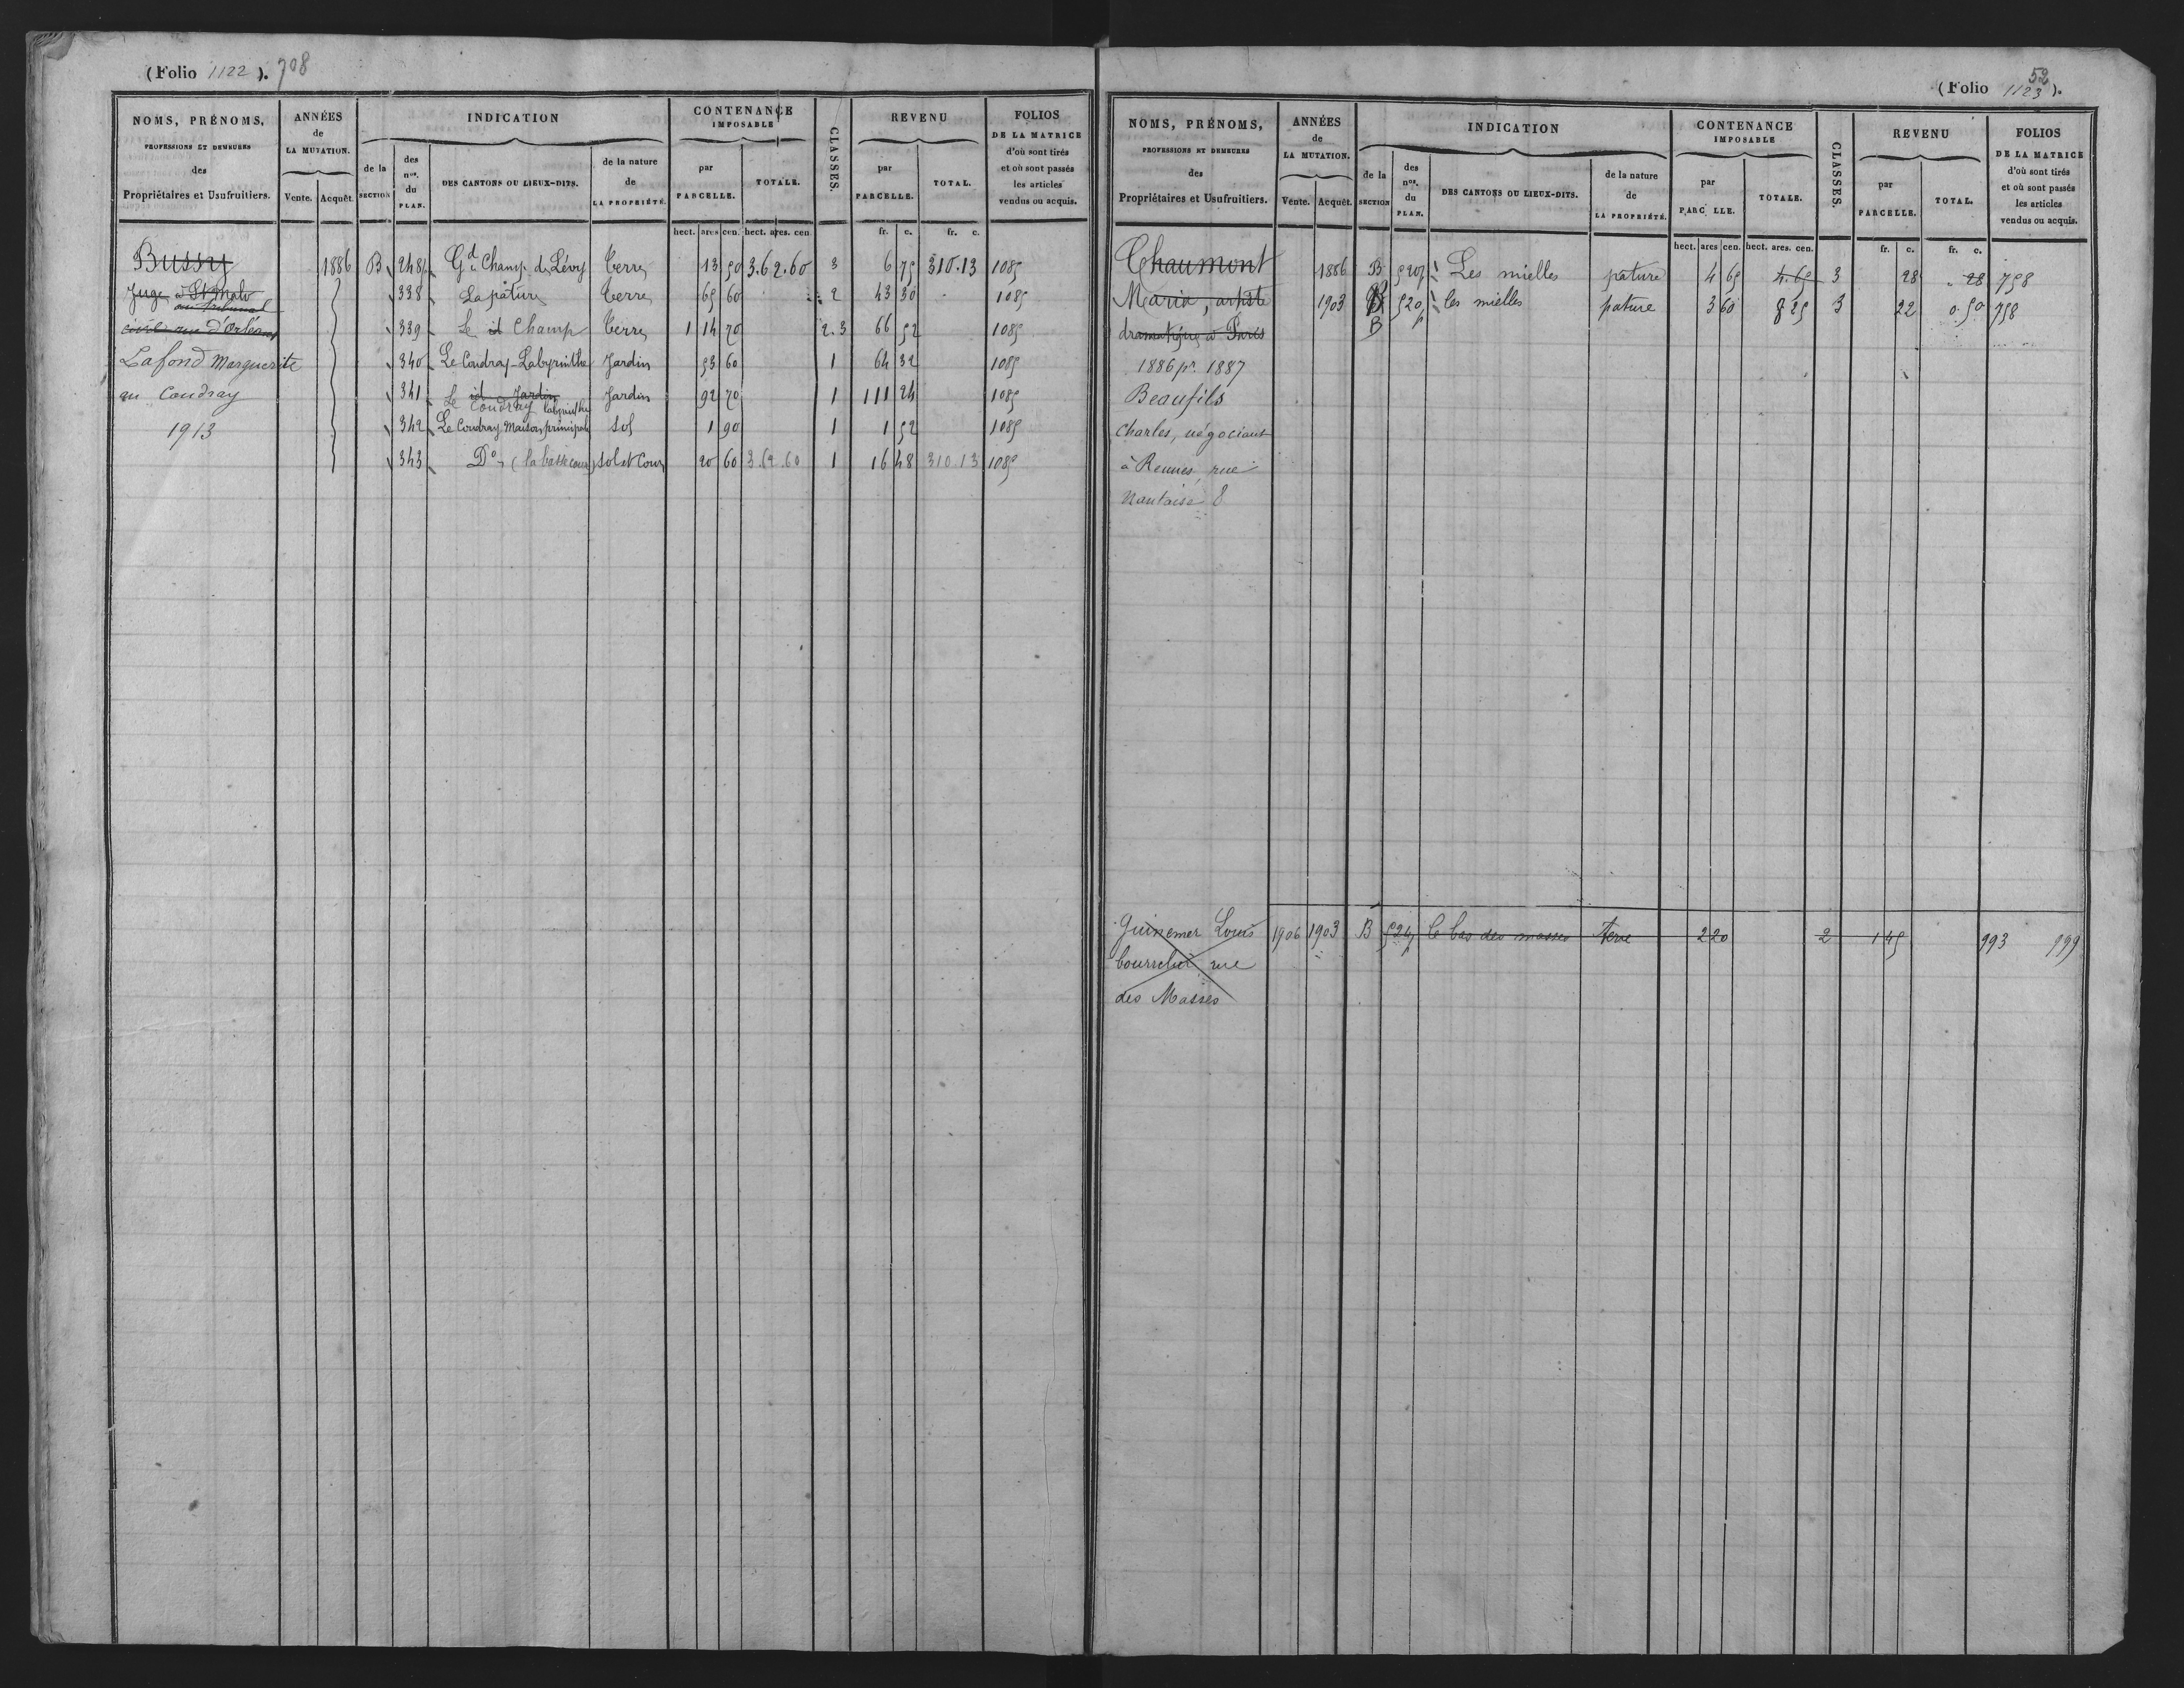 (Folio 1122). 708
NOMS, PRÉNOMS,
PROFESSIONS ET DEMEURES
des
Propriétaires et Usufruitiers.
ANNÉES
de
LA MUTATION.
Vente. Acquêt.
INDICATION
de la
SECTION
des
nos.
du
PLAN.
DES CANTONS OU LIEUX-DITS.
de la nature
de
LA PROPRIÉTÉ.
CONTENANCE
IMPOSABLE
par
PARCELLE.
TOTALE.
CLASSES.
REVENU
par
PARCELLE.
TOTAL.
FOLIOS
DE LA MATRICE
d'où sont tirés
et où sont passés
les articles
vendus ou acquis.
hect. ares cen. hect. ares. cen. fr. c. fr. c.
Bussy 1886 B 248p Gd Champ de Lévy Terre 13 50 3.62.60 3 6 75 310.13 1085
Juge à St Malo 338 La pâture Terre 65 60 2 43 30 1085
au tribunal
civil rue d'Orléans 339 Le id Champ Terre 1 14 70 2.3 66 52 1085
Lafond Marguerite 340 Le Coudray-Labyrinthe Jardin 53 60 1 64 32 1085
au Coudray 341 Le id Jardin Jardin 92 70 1 111 24 1085
Coudray labyrinthe
1913 342 Le Coudray Maison principale Sol 1 90 1 1 52 1085
343 Do (la basse cour) sol et cour 20 60 3.62.60 1 16 48 310.13 1085
(Folio 1123). 52
NOMS, PRÉNOMS,
PROFESSIONS ET DEMEURES
des
Propriétaires et Usufruitiers.
ANNÉES
de
LA MUTATION.
Vente. Acquêt.
INDICATION
de la
SECTION
des
nos.
du
PLAN.
DES CANTONS OU LIEUX-DITS.
de la nature
de
LA PROPRIÉTÉ.
CONTENANCE
IMPOSABLE
par
PARC LLE.
TOTALE.
CLASSES.
REVENU
par
PARCELLE.
TOTAL.
FOLIOS
DE LA MATRICE
d'où sont tirés
et où sont passés
les articles
vendus ou acquis.
hect. ares cen. hect. ares. cen. fr. c. fr. c.
Chaumont 1886 B 520p Les mielles pature 4 65 4.65 3 28 28 758
Maria, artiste 1903 B 520p les mielles pature 3 60 8 25 3 22 0.50 758
dramatique à Paris B
1886 pr 1887
Beaufils
Charles, négociant
à Rennes, rue
Nantaise 8
Guinemer Louis 1906 1903 B 524p le bas des masses terre 2 20 2 1 45 993 999
bourrelier rue
des Masses